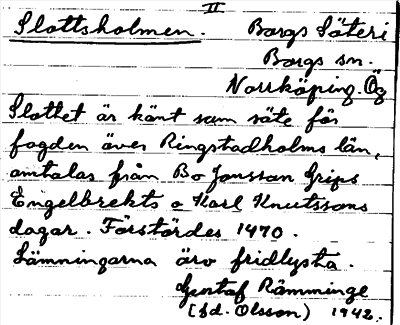 II
Slottsholmen. Borgs Säteri
Borgs sn.
Norrköping. Ög
Slottet är känt som säte för
fogden över Ringstadholms län,
omtalas från Bo Jonsson Grips
Engelbrekts o Karl Knutssons
dagar. Förstördes 1470.
Lämningarna äro fridlysta.
Gustaf Rämminge
(f.d. Olsson) 1942.